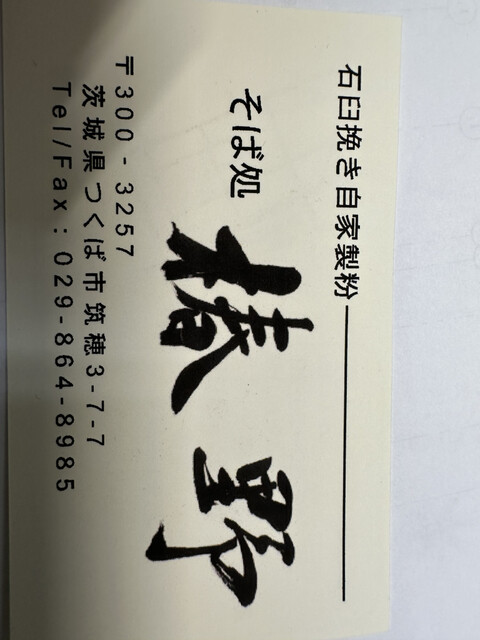 石臼挽き自家製粉
そば処
椿野
〒300-3257
茨城県つくば市筑穂3-7-7
Tel/Fax：029-864-8985